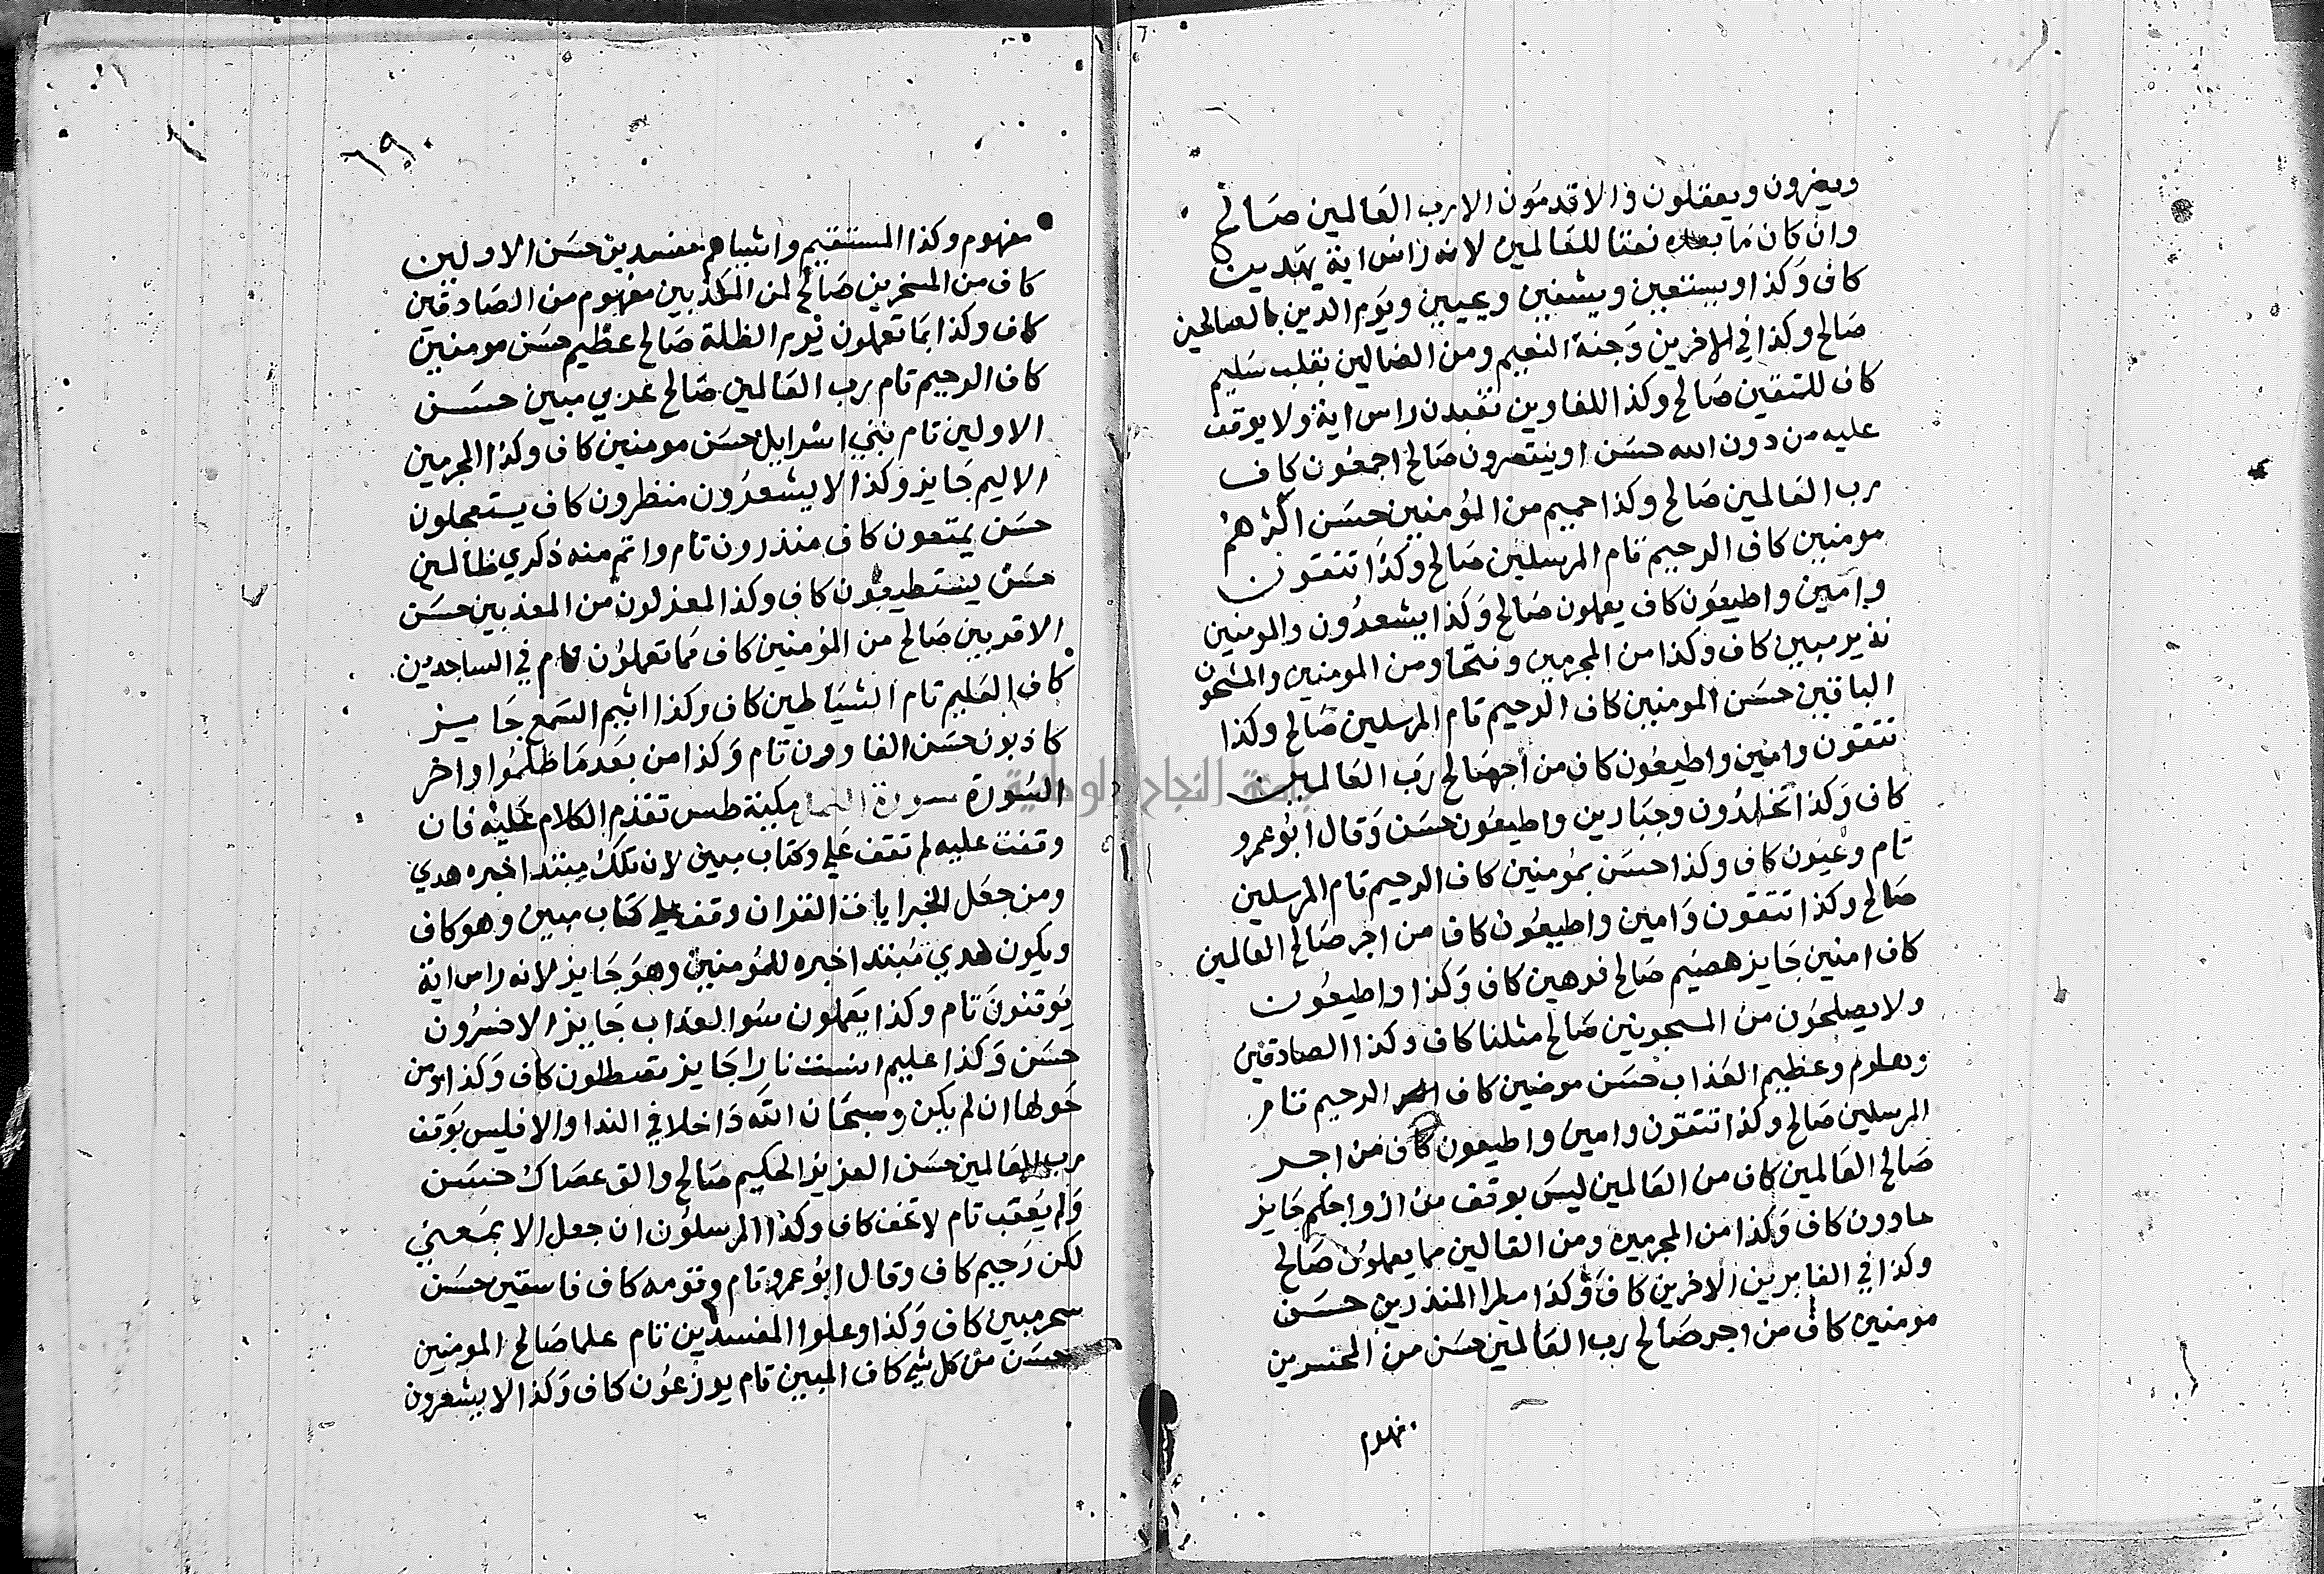 ويضرون ويعقلون والاقدمون الارب العالمين صالح
وان كان ما بعده نعتا للعالمين لانه راس اية يهدين
كاف وكذا ويسقين ويشفين ويحيين ويوم الدين بالصالحين
صالح وكذا في الاخرين وجنة النعيم ومن الضالين بقلب سليم
كاف للمتقين صالح وكذا للغاوين تعبدون راس اية ولا يوقف
عليه من دون الله حسن او ينتصرون صالح اجمعون كاف
رب العالمين صالح وكذا حميم من المؤمنين حسن اكثرهم
مومنين كاف الرحيم تام المرسلين صالح وكذا تتقون
وامين واطيعون كاف يعملون صالح وكذا يشعرون والمومنين
نذير مبين كاف وكذا من المرجومين وفتحا ومن المومنين والمشحون
الباقين حسن المومنين كاف الرحيم تام المرسلين صالح وكذا
تتقون وامين واطيعون كاف من اجر صالح رب العالمين
كاف وكذا تخلدون وجبارين واطيعون حسن وقال ابو عمرو
تام وعيون كاف وكذا حسن بمومنين كاف الرحيم تام المرسلين
صالح وكذا تتقون وامين واطيعون كاف من اجر صالح العالمين
كاف امنين جايز هضيم صالح فرهين كاف وكذا واطيعون
ولا يصلحون من المسحرين صالح مثلنا كاف وكذا الصادقين
ومعلوم وعظيم العذاب حسن مومنين كاف الرحيم تام
المرسلين صالح وكذا تتقون وامين واطيعون كاف من اجر
صالح العالمين كاف من العالمين ليس بوقف من ازواجكم جايز
عادون كاف وكذا من المخرجين ومن القالين مما يعملون صالح
وكذا في الغابرين الاخرين كاف وكذا مطرا المنذرين حسن
مومنين كاف من اجر صالح رب العالمين حسن من المخسرين
مفهوم
١٩٠
مفهوم وكذا المستقيم واشياهم مفسدين حسن الاولين
كاف من المسحرين صالح لمن الكاذبين مفهوم من الصادقين
كاف وكذا بما تعملون يوم الظلة صالح عظيم حسن مومنين
كاف الرحيم تام رب العالمين صالح عربي مبين حسن
الاولين تام بني اسرايل حسن مومنين كاف وكذا المجرمين
الاليم جايز وكذا لا يشعرون منظرون كاف يستعجلون
حسن يمتعون كاف منذرون تام واتم منه ذكري ظالمين
حسن يستطيعون كاف وكذا لمعزولون من المعذبين حسن
الاقربين صالح من المؤمنين كاف مما تعملون تام في الساجدين
كاف العليم تام الشياطين كاف وكذا اثيم السمع جايز
كاذبون حسن الغاوون تام وكذا من بعد ما ظلموا واخر
السورة سورة النمل مكية طس تقدم الكلام عليه فان
وقفت عليه لم تقف علي وكتاب مبين لان تلك مبتدا خبره هدي
ومن جعل الخبر ايات القران وقف علي كتاب مبين وهو كاف
ويكون هدي مبتدا خبره للمؤمنين وهو جايز لانه راس اية
يوقنون تام وكذا يعملون سوا العذاب جايز الاخسرون
حسن وكذا عليم انست نارا جايز تصطلون كاف وكذا ومن
حولها ان لم يكن وسبحان الله داخلا في الندا والا فليس بوقف
رب العالمين حسن العزيز الحكيم صالح والق عصاك حسن
ولم يعقب تام لا تخف كاف وكذا المرسلون ان جعل الا بمعني
لكن رحيم كاف وقال ابو عمرو تام وقومه كاف فاسقين حسن
سحر مبين كاف وكذا وعلوا المفسدين تام علما صالح المومنين
حسن من كل شي كاف المبين تام يوزعون كاف وكذا لا يشعرون
جامعة النجاح الوطنية